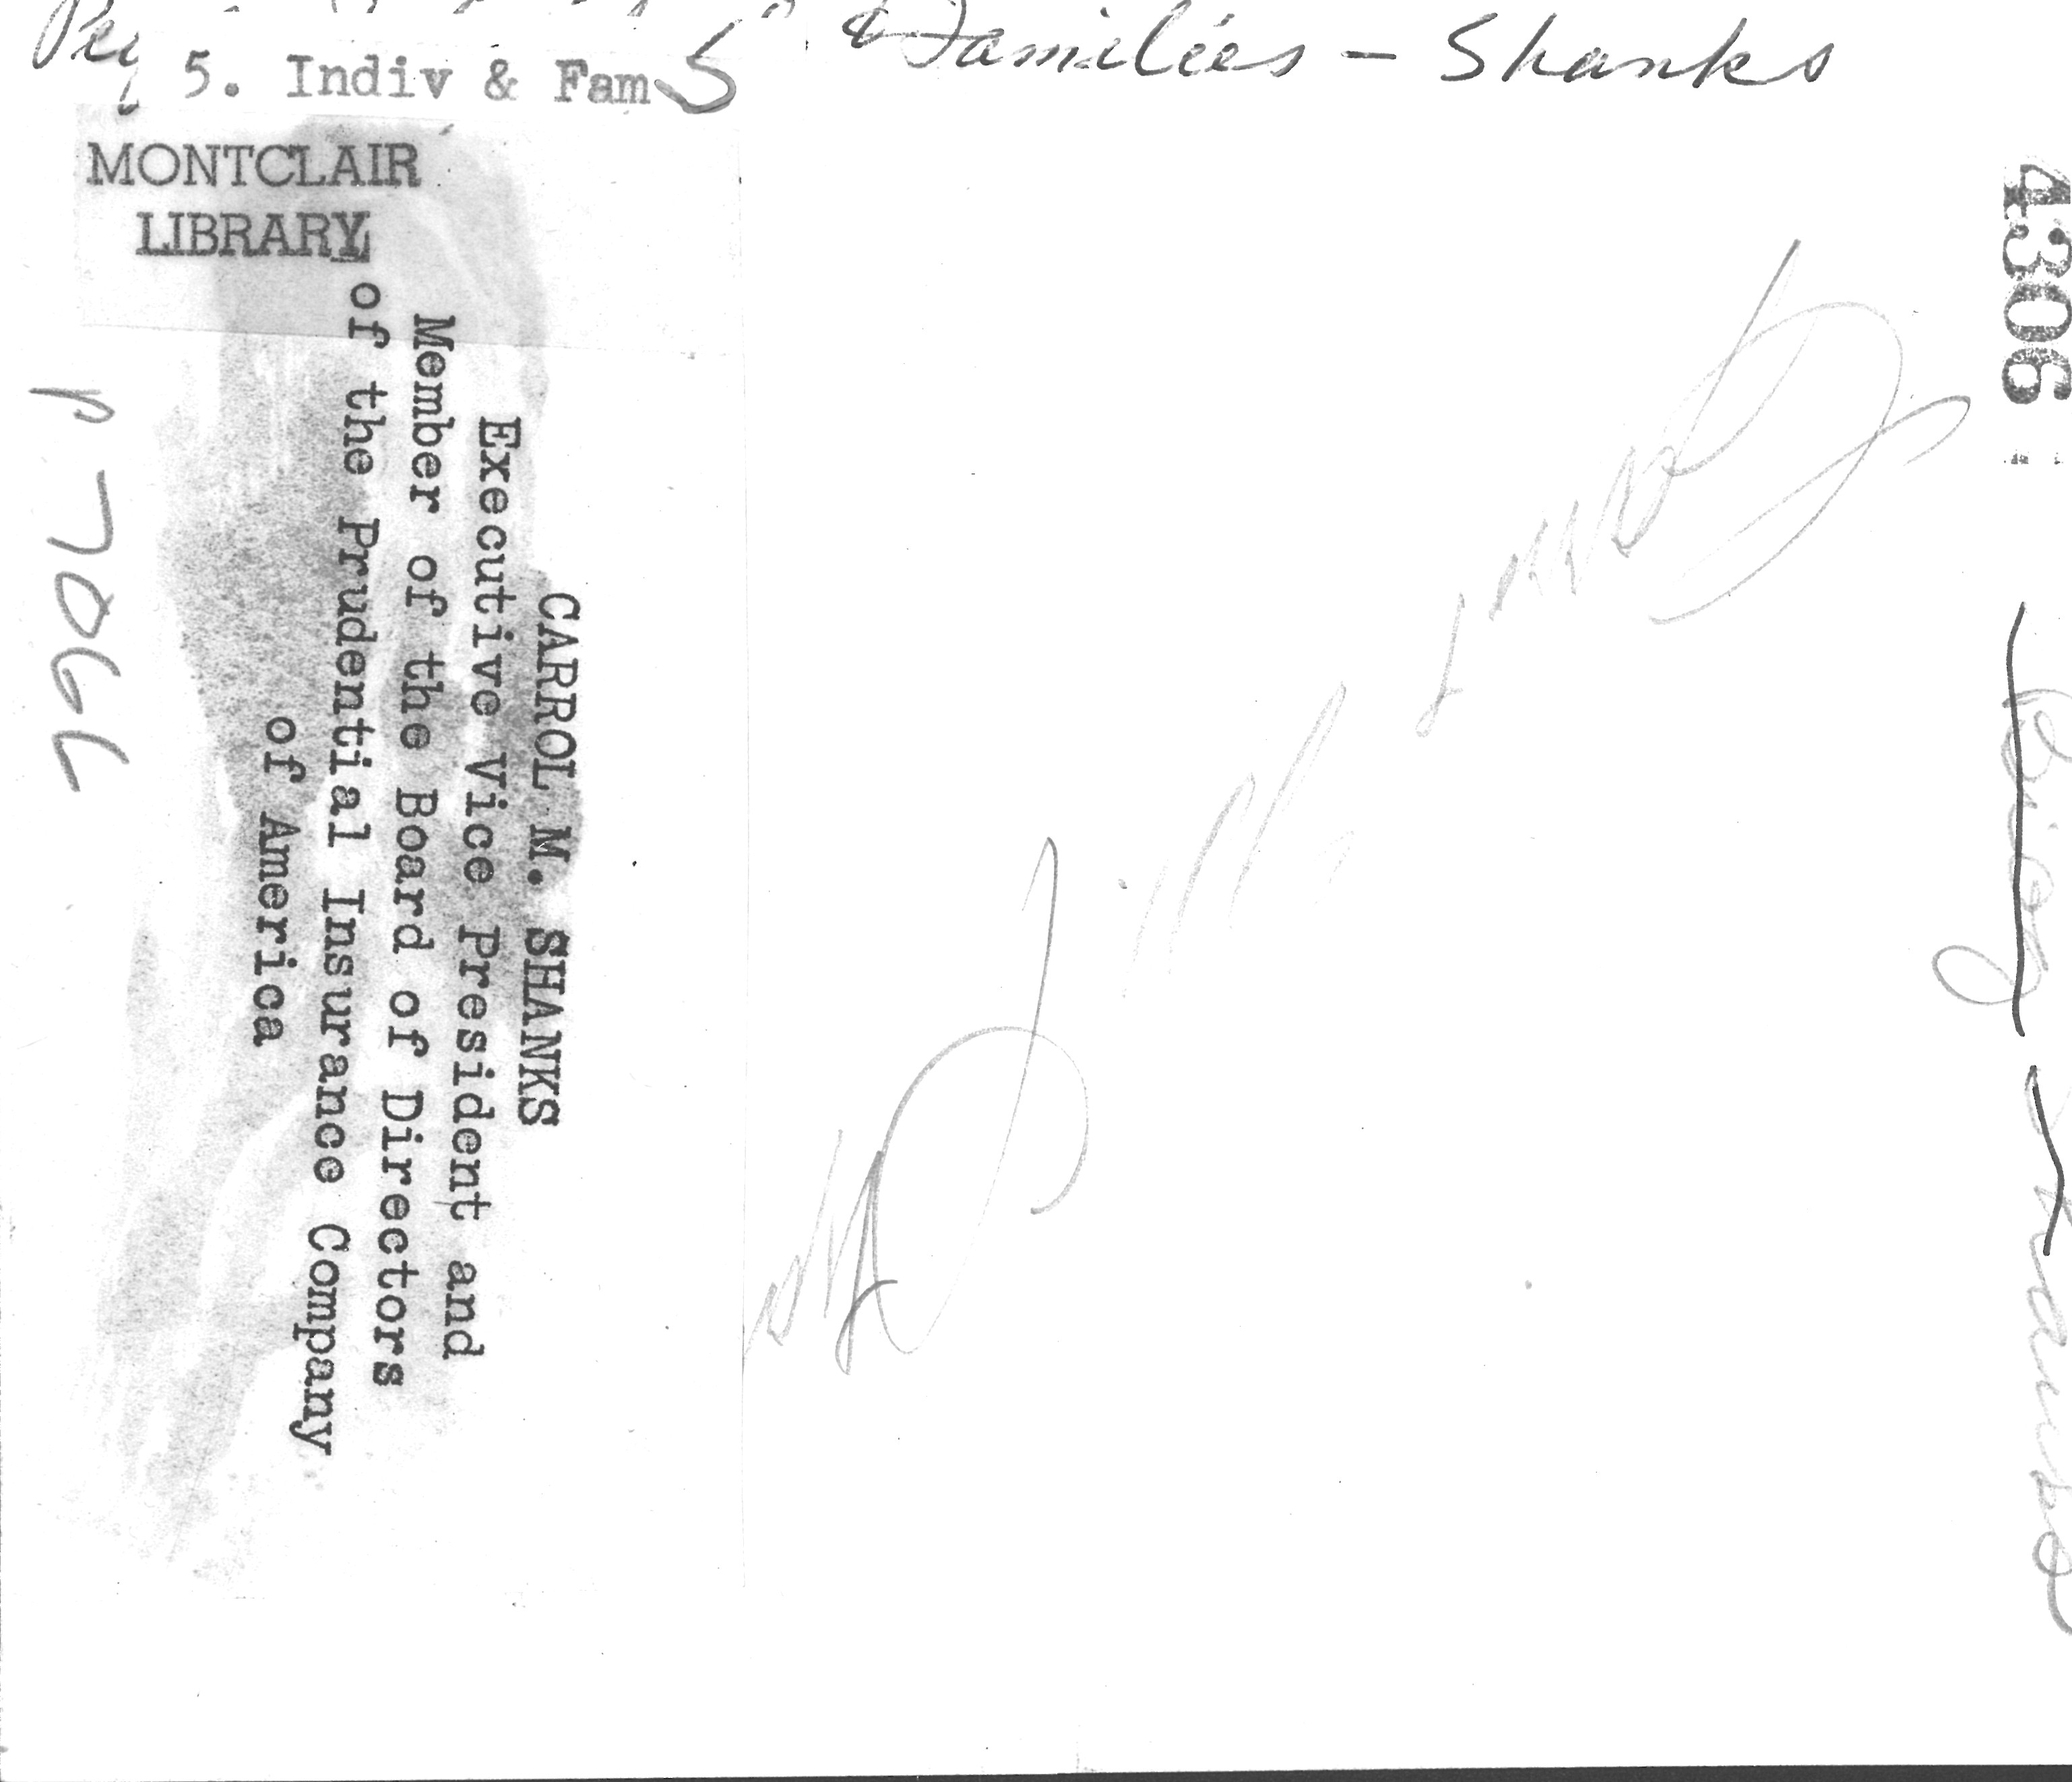 & Families - Shanks
5. Indiv & Fam S
MONTCLAIR
LIBRARY
CARROL M. SHANKS
Executive Vice President and
Member of the Board of Directors
of the Prudential Insurance Company
of America
4306
Biog
Carrol M. Sha